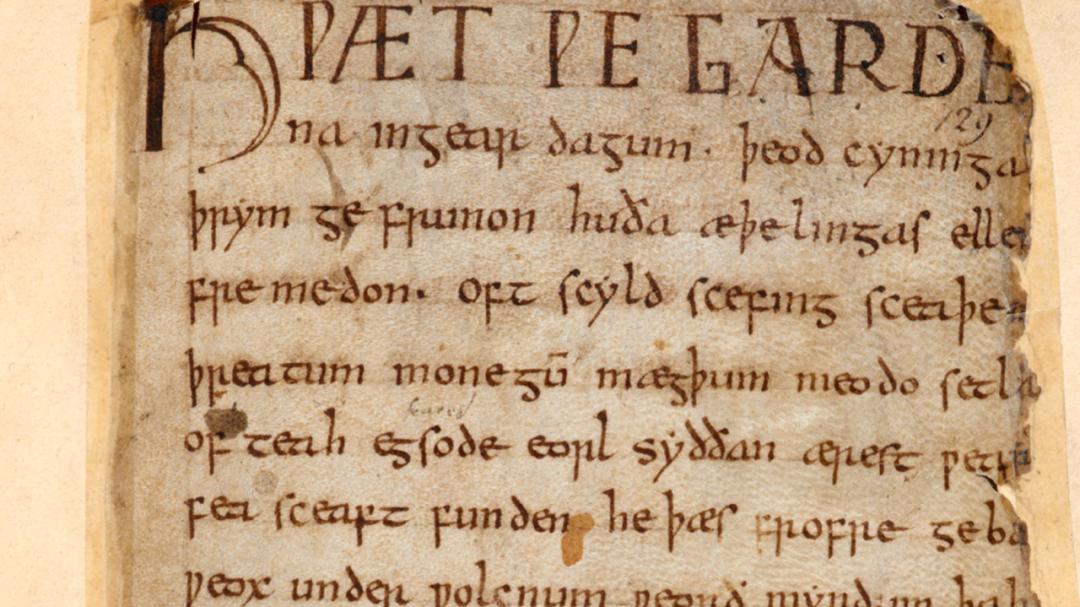 HǷÆT ǷE GARDE
129
na ingear dagum. þeod cyninga
þrym gefrunon huða æþelingas elle
fremedon. oft scyld scefing sceaþe
þreatum monegū mægþum meodo setla
of teah egsode eorl syððan ærest ƿear
fea sceaft funden he þæs frofre geba
ƿeox under ƿolcnum ƿeorð mynd um